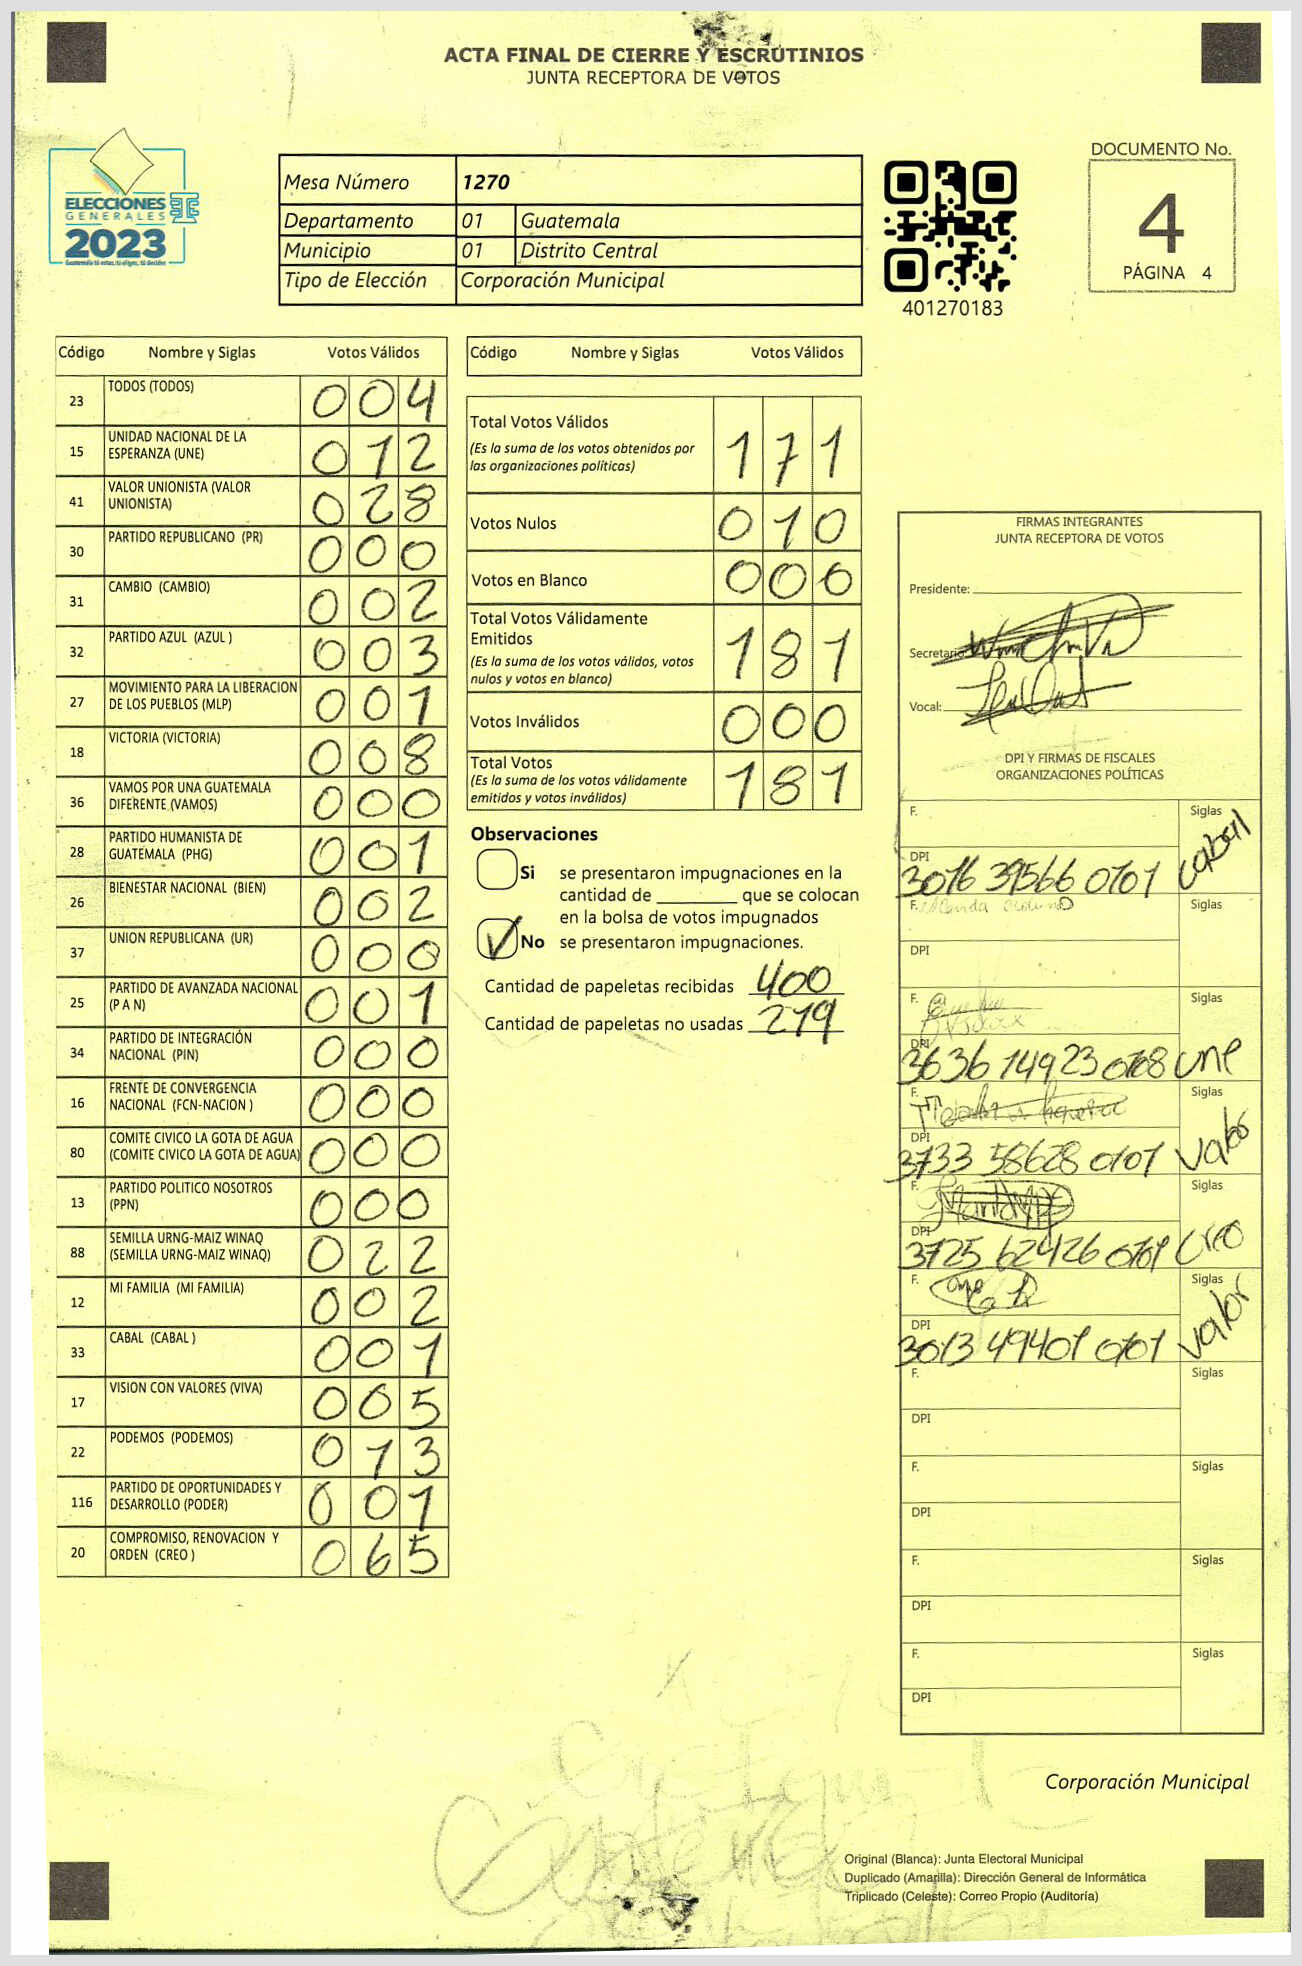 ACTA FINAL DE CIERRE Y ESCRUTINIOS
JUNTA RECEPTORA DE VOTOS
ELECCIONES
GENERALES
2023
Mesa Número 1270
Departamento 01 Guatemala
Municipio 01 Distrito Central
Tipo de Elección Corporación Municipal
401270183
DOCUMENTO No.
4
PÁGINA 4
Código Nombre y Siglas Votos Válidos
23 TODOS (TODOS) 004
15 UNIDAD NACIONAL DE LA ESPERANZA (UNE) 012
41 VALOR UNIONISTA (VALOR UNIONISTA) 028
30 PARTIDO REPUBLICANO (PR) 000
31 CAMBIO (CAMBIO) 002
32 PARTIDO AZUL (AZUL ) 003
27 MOVIMIENTO PARA LA LIBERACION DE LOS PUEBLOS (MLP) 001
18 VICTORIA (VICTORIA) 008
36 VAMOS POR UNA GUATEMALA DIFERENTE (VAMOS) 000
28 PARTIDO HUMANISTA DE GUATEMALA (PHG) 001
26 BIENESTAR NACIONAL (BIEN) 002
37 UNION REPUBLICANA (UR) 000
25 PARTIDO DE AVANZADA NACIONAL (P A N) 001
34 PARTIDO DE INTEGRACIÓN NACIONAL (PIN) 000
16 FRENTE DE CONVERGENCIA NACIONAL (FCN-NACION ) 000
80 COMITE CIVICO LA GOTA DE AGUA (COMITE CIVICO LA GOTA DE AGUA) 000
13 PARTIDO POLITICO NOSOTROS (PPN) 000
88 SEMILLA URNG-MAIZ WINAQ (SEMILLA URNG-MAIZ WINAQ) 022
12 MI FAMILIA (MI FAMILIA) 002
33 CABAL (CABAL ) 001
17 VISION CON VALORES (VIVA) 005
22 PODEMOS (PODEMOS) 013
116 PARTIDO DE OPORTUNIDADES Y DESARROLLO (PODER) 001
20 COMPROMISO, RENOVACION Y ORDEN (CREO ) 065
Código Nombre y Siglas Votos Válidos
Total Votos Válidos 171
(Es la suma de los votos obtenidos por
las organizaciones políticas)
Votos Nulos 010
Votos en Blanco 000
Total Votos Válidamente
Emitidos 181
(Es la suma de los votos válidos, votos
nulos y votos en blanco)
Votos Inválidos 000
Total Votos 181
(Es la suma de los votos válidamente
emitidos y votos inválidos)
Observaciones
Si se presentaron impugnaciones en la
cantidad de ________ que se colocan
en la bolsa de votos impugnados
No se presentaron impugnaciones.
Cantidad de papeletas recibidas 400
Cantidad de papeletas no usadas 219
FIRMAS INTEGRANTES
JUNTA RECEPTORA DE VOTOS
Presidente:
Secretario:
Vocal:
DPI Y FIRMAS DE FISCALES
ORGANIZACIONES POLÍTICAS
F. Siglas
DPI 3016 39566 0101
F. Siglas
DPI
F. Siglas
DPI 3636 14923 0108 une
F. Siglas
DPI 3733 58628 0101 valor
F. Siglas
DPI 3725 62426 0101 Creo
F. Siglas
DPI 3013 49401 0101 valor
F. Siglas
DPI
F. Siglas
DPI
F. Siglas
DPI
F. Siglas
DPI
Corporación Municipal
Original (Blanca): Junta Electoral Municipal
Duplicado (Amarilla): Dirección General de Informática
Triplicado (Celeste): Correo Propio (Auditoría)